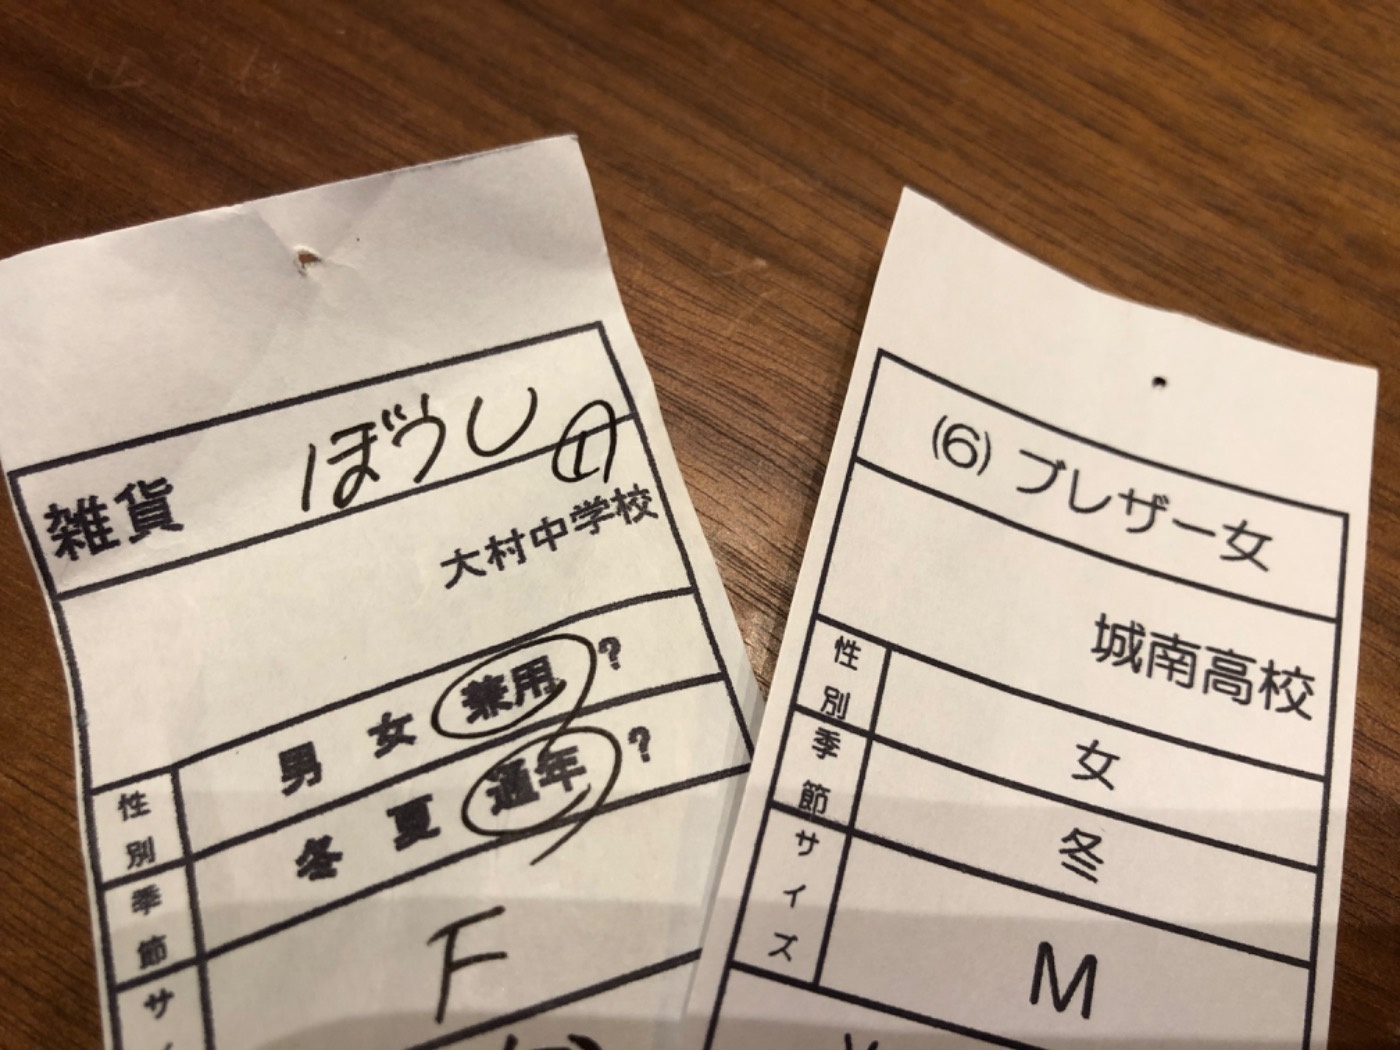 雑貨 ぼうし
大村中学校
性別 男 女 兼用 ?
季節 冬 夏 通年 ?
サ
F
(6) ブレザー女
城南高校
性別 女
季節 冬
サイズ M